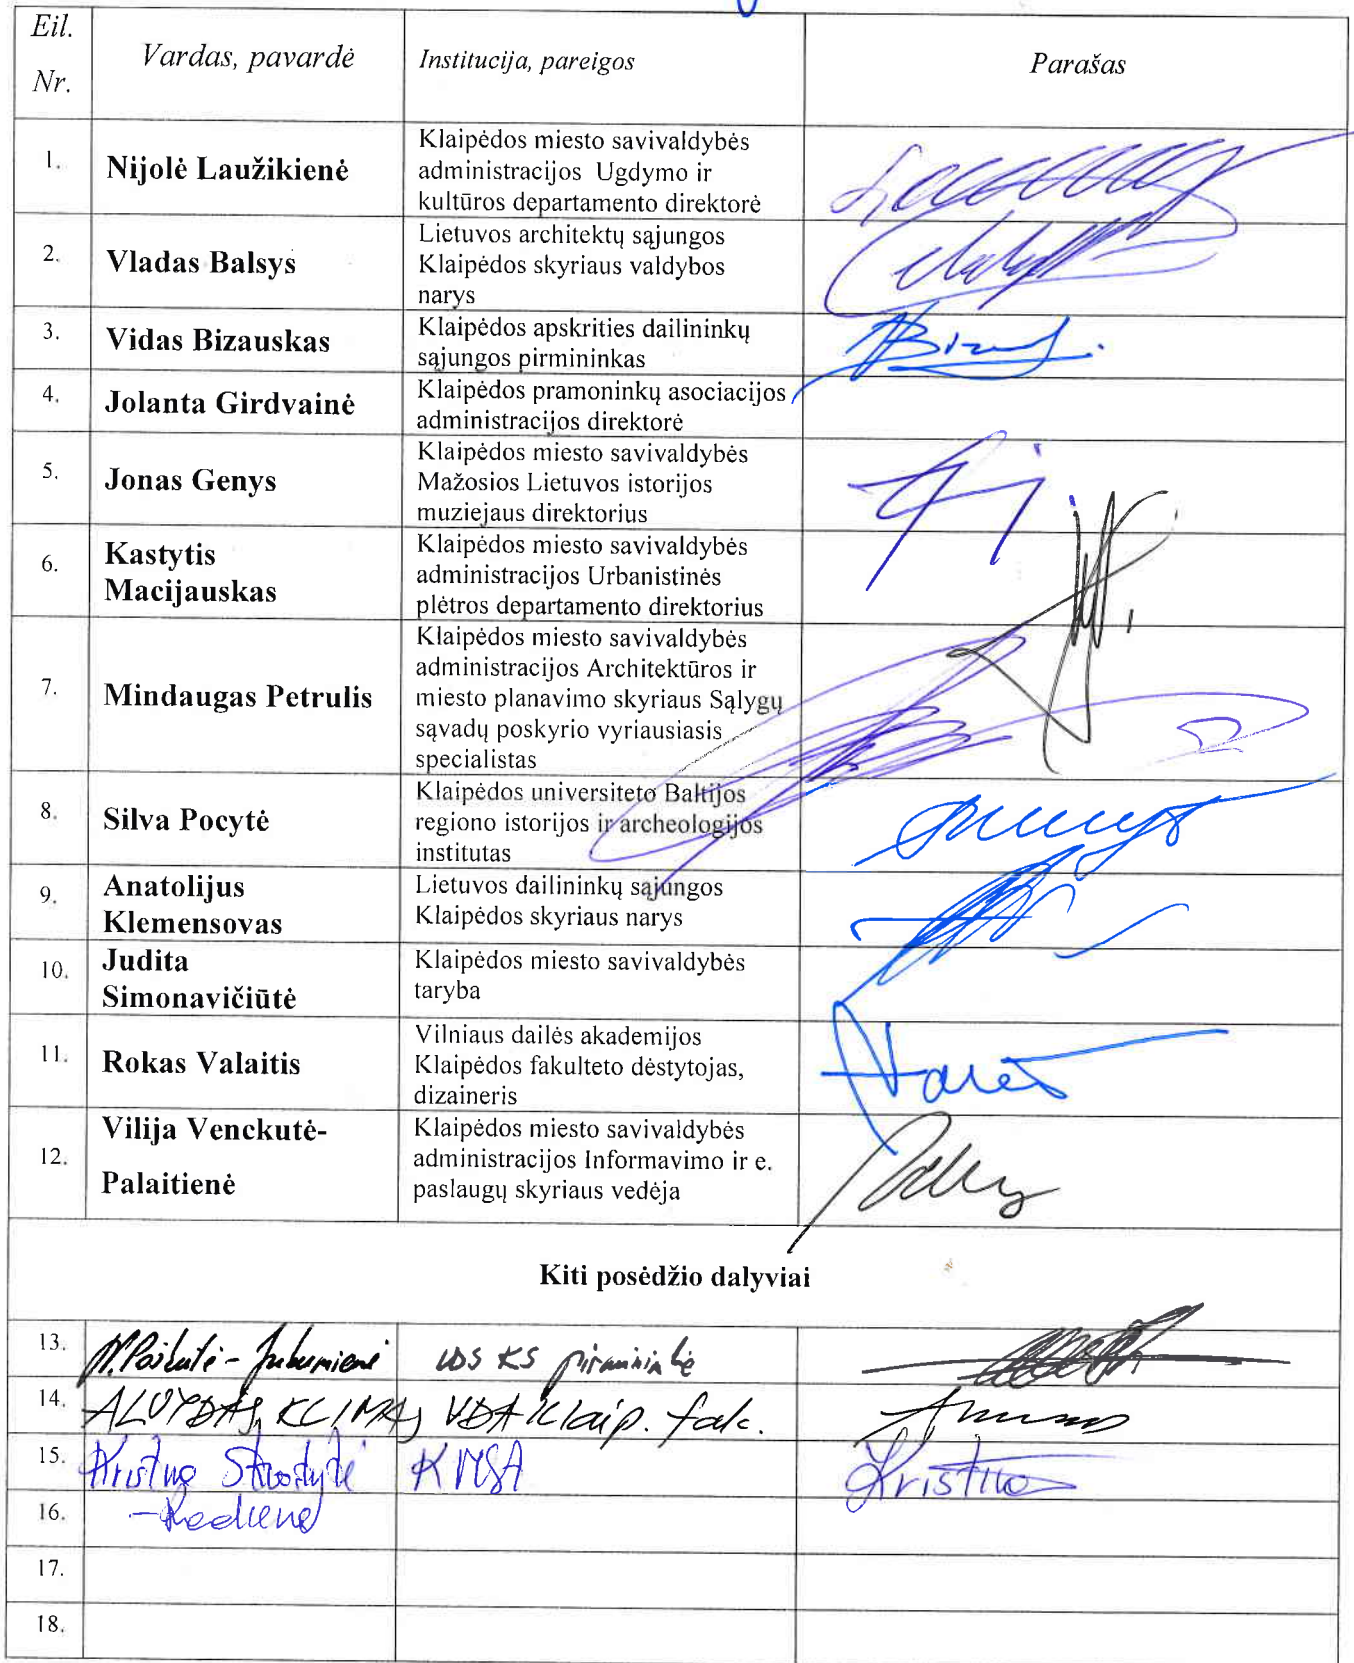 Eil.
Nr.
Vardas, pavardė
Institucija, pareigos
Parašas
1.
Nijolė Laužikienė
Klaipėdos miesto savivaldybės
administracijos Ugdymo ir
kultūros departamento direktorė
2.
Vladas Balsys
Lietuvos architektų sąjungos
Klaipėdos skyriaus valdybos
narys
3.
Vidas Bizauskas
Klaipėdos apskrities dailininkų
sąjungos pirmininkas
4.
Jolanta Girdvainė
Klaipėdos pramoninkų asociacijos
administracijos direktorė
5.
Jonas Genys
Klaipėdos miesto savivaldybės
Mažosios Lietuvos istorijos
muziejaus direktorius
6.
Kastytis
Macijauskas
Klaipėdos miesto savivaldybės
administracijos Urbanistinės
plėtros departamento direktorius
7.
Mindaugas Petrulis
Klaipėdos miesto savivaldybės
administracijos Architektūros ir
miesto planavimo skyriaus Sąlygų
sąvadų poskyrio vyriausiasis
specialistas
8.
Silva Pocytė
Klaipėdos universiteto Baltijos
regiono istorijos ir archeologijos
institutas
9.
Anatolijus
Klemensovas
Lietuvos dailininkų sąjungos
Klaipėdos skyriaus narys
10.
Judita
Simonavičiūtė
Klaipėdos miesto savivaldybės
taryba
11.
Rokas Valaitis
Vilniaus dailės akademijos
Klaipėdos fakulteto dėstytojas,
dizaineris
12.
Vilija Venckutė-
Palaitienė
Klaipėdos miesto savivaldybės
administracijos Informavimo ir e.
paslaugų skyriaus vedėja
Kiti posėdžio dalyviai
13.
LDS KS pirmininkė
14.
ALOYDAS KLIMAS
VDA Klaip. fak.
15.
Kristina
KMSA
Kristina
16.
17.
18.